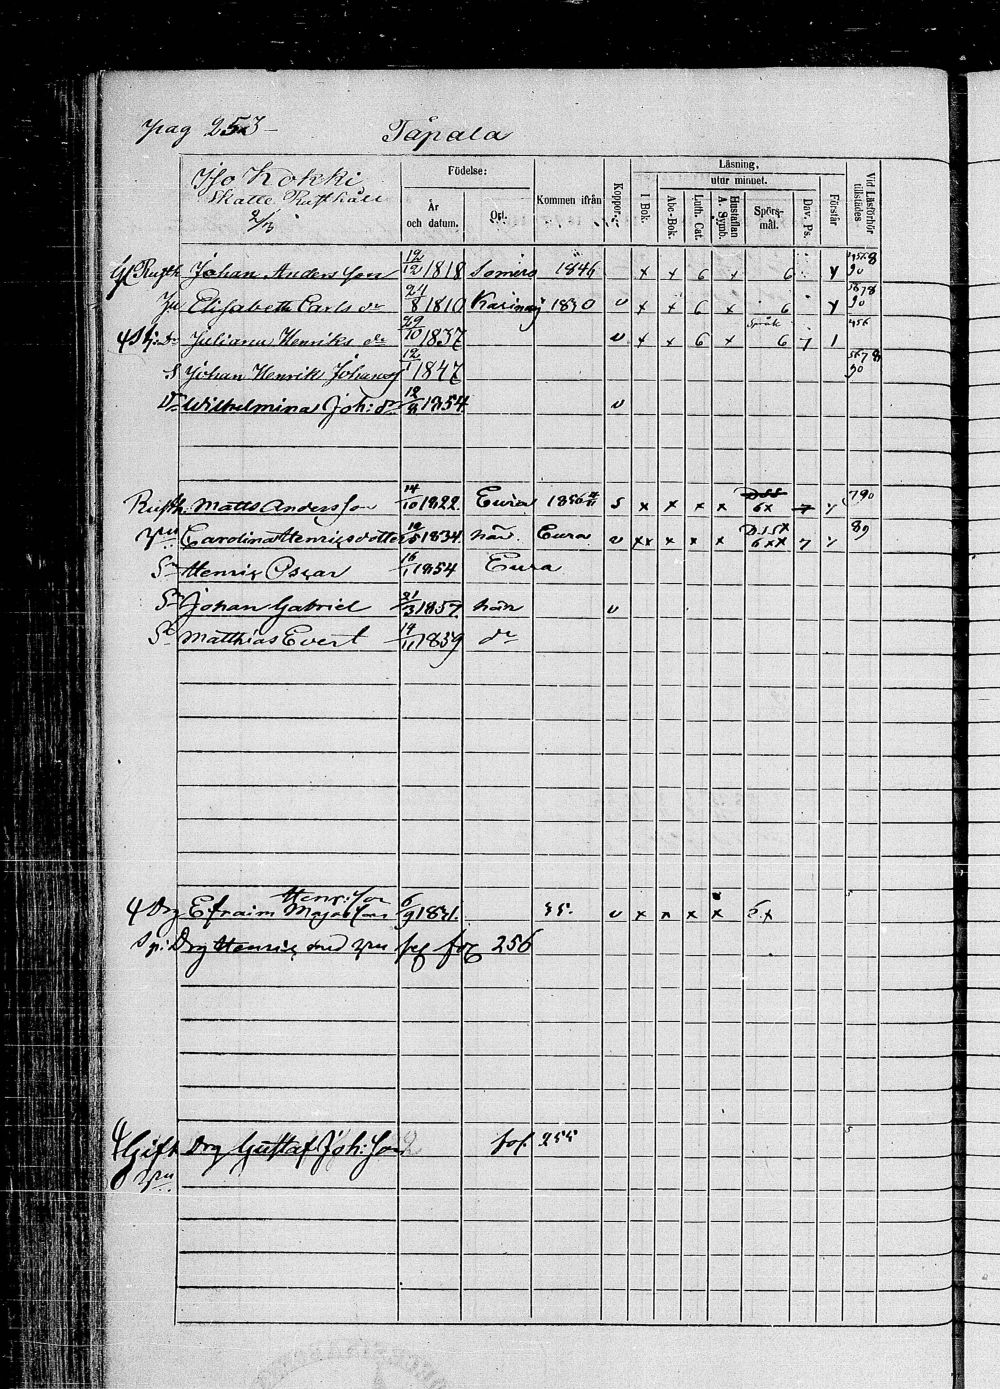 pag 253 Tåpala
Iso Kokki
Skatte Rusthåll
2/3
Födelse:
År och datum.
Ort.
Kommen ifrån
Koppor.
Läsning,
utur minnet.
I Bok.
Abc-Bok.
Luth. Cat.
Hustaflan A. Symb.
Spörsmål.
Dav. Ps.
Förstår
Vid Läsförhör tillstädes
Gl Rusth Johan Andersson 12/12 1818 Somero 1846 x x 6 x 6
Elisabeth Carls dr 24/8 1810 Karinaj 1830 v x x 6 x 6
Juliana Henriks dr 29/10 1837 v x x 6 x 6 7 1
S Johan Henrik Johans 12/1 1847
Dr Wilhelmina Joh: dr 12/8 1854 v
Rusth. Matts Andersson 14/10 1822 Eura 1856 s x x x x 6x 7 790
Carolina Henricsdotter 1834 här Eura v xx x x x 6xx 7 89
Sn Henric Oscar 16/1 1854 Eura
Sn Johan Gabriel 21/3 1857 här v
Sn Matthias Evert 14/11 1859 dr
Henr: son
Drg Efraim Majas son 6/9 1831. 55. v x x x x 6x
Drg Henric med fol 256
Gift Drg Gustaf Joh: Son fol 255